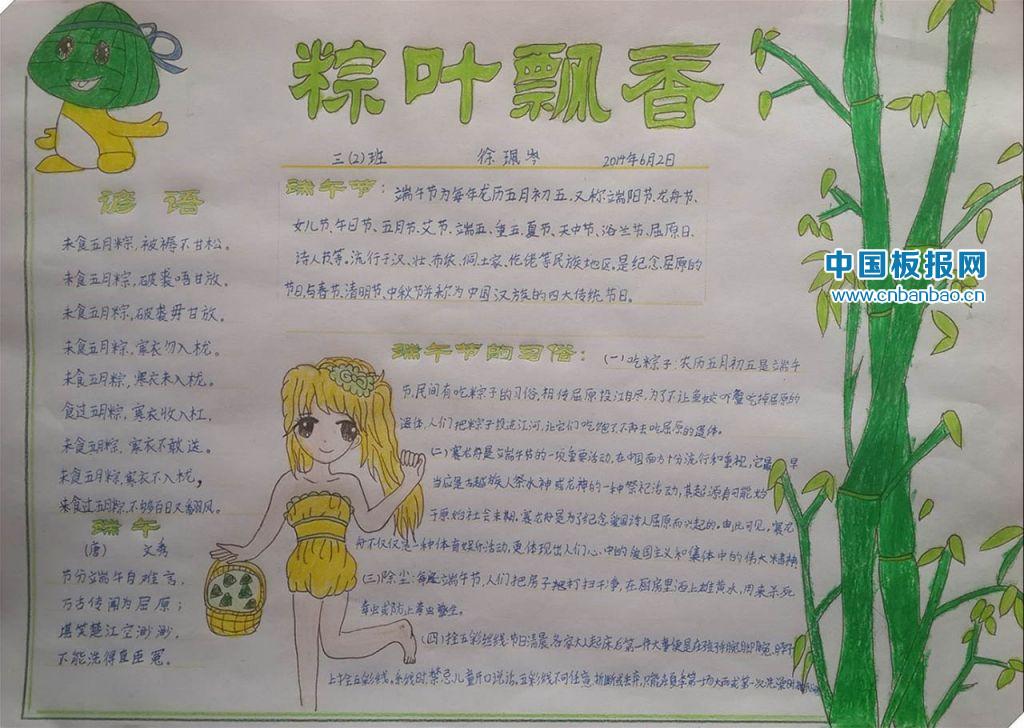 粽叶飘香
三(2)班 徐珮岑 2014年6月2日
谚语
未食五月粽，被褥不甘松。
未食五月粽，破裘唔甘放。
未食五月粽，破裘毋甘放。
未食五月粽，寒衣勿入栊。
未食五月粽，寒衣未入栊。
食过五月粽，寒衣收入杠，
未食五月粽，寒衣不敢送。
未食五月粽，寒衣不入栊，
未食过五月粽，不够百日又番风。
端午
(唐) 文秀
节分端午自难言，
万古传闻为屈原；
堪笑楚江空渺渺，
不能洗得直臣冤。
端午节：端午节为每年龙历五月初五，又称端阳节、龙舟节、
女儿节、午日节、五月节、艾节、端五、重五、夏节、天中节、浴兰节、屈原日、
诗人节等。流行于汉、壮、布依、侗、土家、仡佬等民族地区。是纪念屈原的
节日，与春节、清明节、中秋节并称为中国汉族的四大传统节日。
端午节的习俗：(一)吃粽子：农历五月初五是端午
节，民间有吃粽子的习俗，相传屈原投江自尽，为了不让鱼蛟吓蟹吃掉屈原的
遗体，人们把粽子投进江河，让它们吃饱了不再去吃屈原的遗体。
(二)赛龙舟是端午节的一项重要活动，在中国南方十分流行和重视，它最早
当应是古越族人祭水神或龙神的一种祭祀活动，其起源有可能始
于原始社会末期。赛龙舟是为了纪念爱国诗人屈原而兴起的。由此可见，赛龙
舟不仅仅是一种体育娱乐活动，更体现出人们心中的爱国主义和集体中的伟大精神
(三)除尘：每逢端午节，人们把房子打扫干净，在厨房里洒上雄黄水，用来杀死
毒虫或防止毒虫孳生。
(四)拴五彩丝线：节日清晨，各家大人起床后第一件大事便是在孩子
上拴五彩线。系线时，禁忌儿童开口说话。五彩线不可任意折断或丢弃，只能在夏季第一场大雨或第一次洗澡时
中国板报网
www.cnbanbao.cn